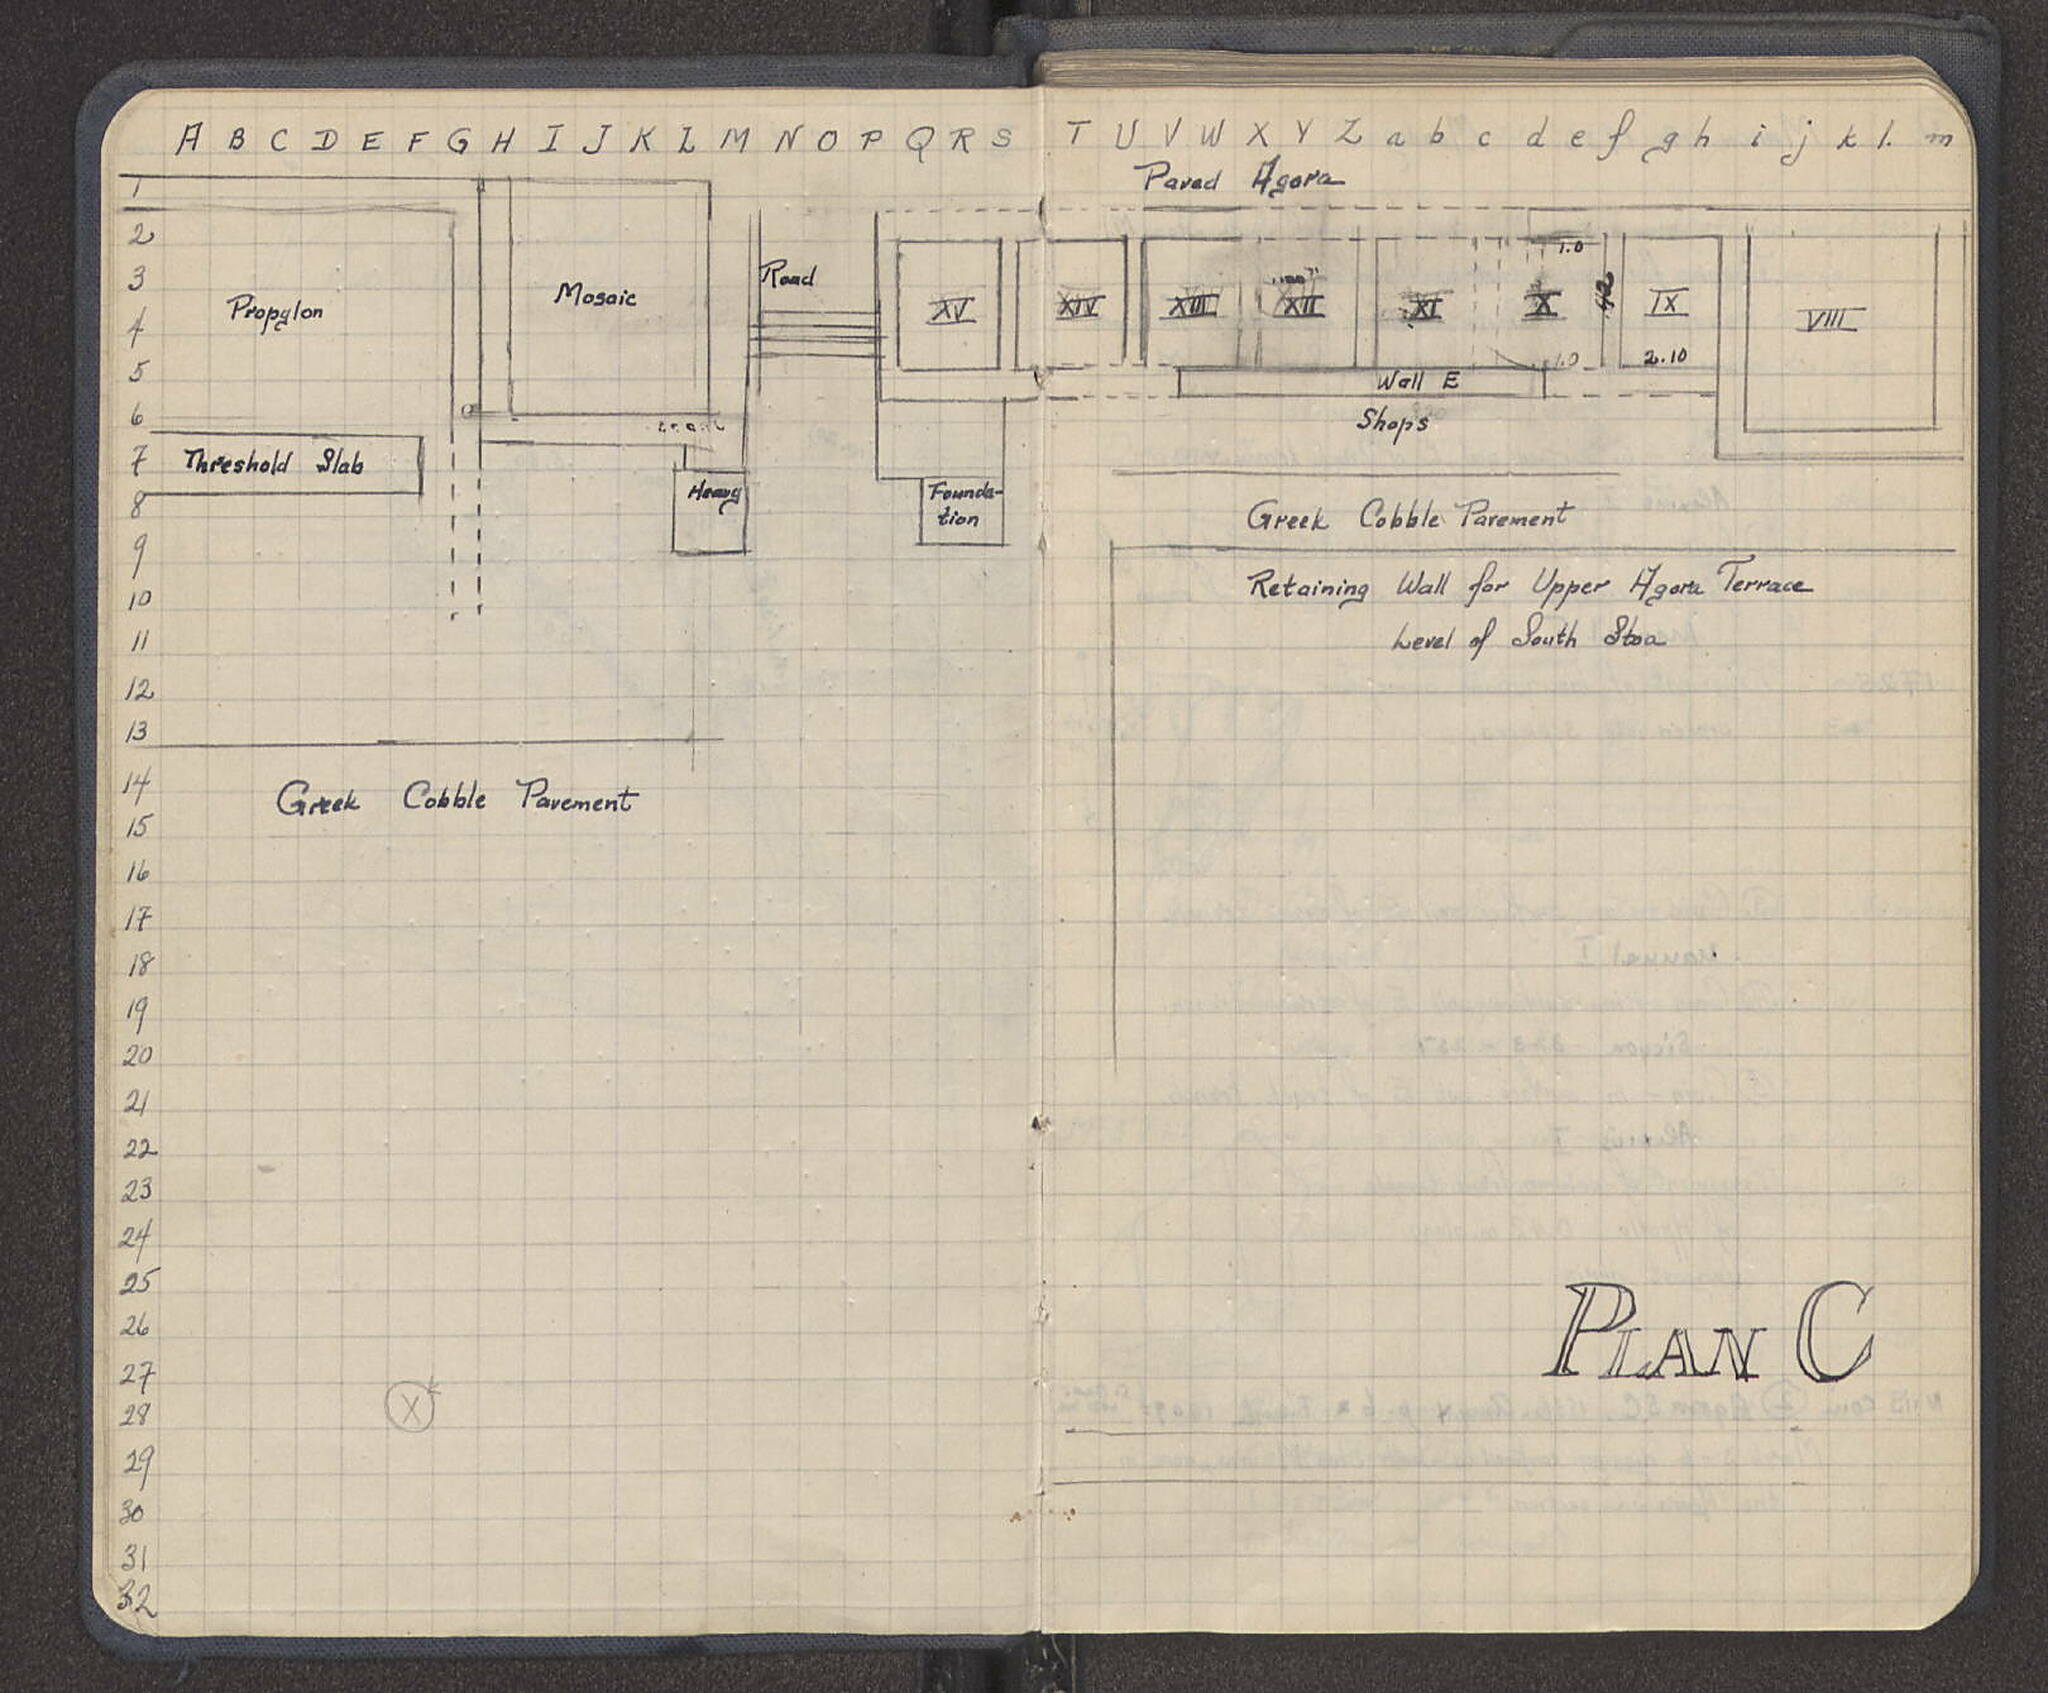 A B C D E F G H I J K L M N O P Q R S T U V W X Y Z a b c d e f g h i j k l. m
Paved Agora
1
2
3
4
5
6
7
8
9
10
11
12
13
14
15
16
17
18
19
20
21
22
23
24
25
26
27
28
29
30
31
32
Propylon
Mosaic
Road
XV
XIV
XIII
XII
XI
X
IX
VIII
1.0
1.0
2.10
Wall E
Shops
Threshold Slab
Heavy
Founda-
tion
Greek Cobble Pavement
Retaining Wall for Upper Agora Terrace
Level of South Stoa
Greek Cobble Pavement
PLAN C
X